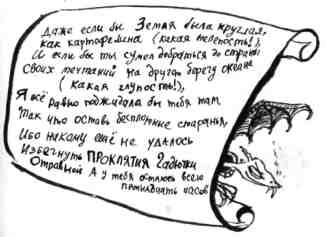 Даже если бы Земля была круглая,
как картофелина (какая нелепость!),
И если бы ты сумел добраться до страны
своих мечтаний на другом берегу океана
(какая глупость!),
Я всё равно поджидала бы тебя там
Так что оставь бесплодные старанья,
Ибо никому ещё не удалось
Избегнуть ПРОКЛЯТИЯ Гадюки
Отравной А у тебя осталось всего
пятнадцать часов